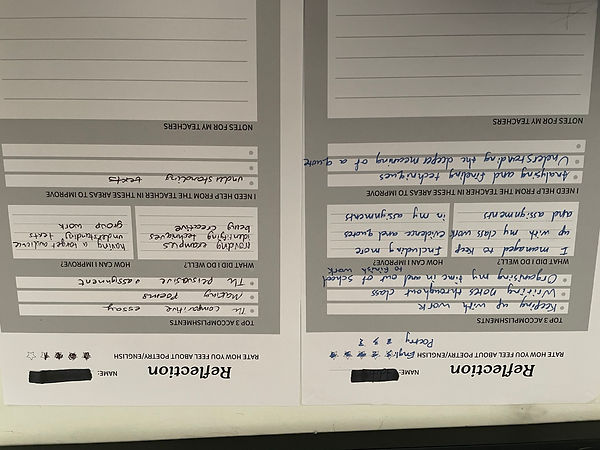 Reflection
NAME:
RATE HOW YOU FEEL ABOUT POETRY/ENGLISH
English
Poetry
TOP 3 ACCOMPLISHMENTS
Keeping up with work
Writing notes throughout class
Organising my time in and out of school
to finish work
WHAT DID I DO WELL?
I managed to keep
up with my class work
and assignments
HOW CAN I IMPROVE?
Including more
evidence and quotes
in my assignments
I NEED HELP FROM THE TEACHER IN THESE AREAS TO IMPROVE
Analysing and finding techniques
Understanding the deeper meaning of a quote
NOTES FOR MY TEACHERS
Reflection
NAME:
RATE HOW YOU FEEL ABOUT POETRY/ENGLISH
TOP 3 ACCOMPLISHMENTS
The comparitive essay
Making Poems
The persuasive assignment
WHAT DID I DO WELL?
identifying techniques
being creative
HOW CAN I IMPROVE?
having a target
understanding texts
group work
I NEED HELP FROM THE TEACHER IN THESE AREAS TO IMPROVE
understanding texts
NOTES FOR MY TEACHERS